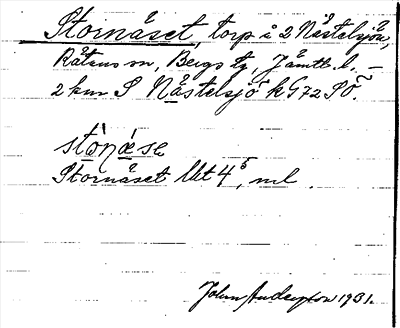 Stornäset, torp å 2 Nästelsjön,
Rätans sn, Bergs tg, Jämtl. l. –
2 km S Nästelsjö kG 72 SÖ.
Stornäset Ukt 4⁵, ml.
John Anderson 1931.